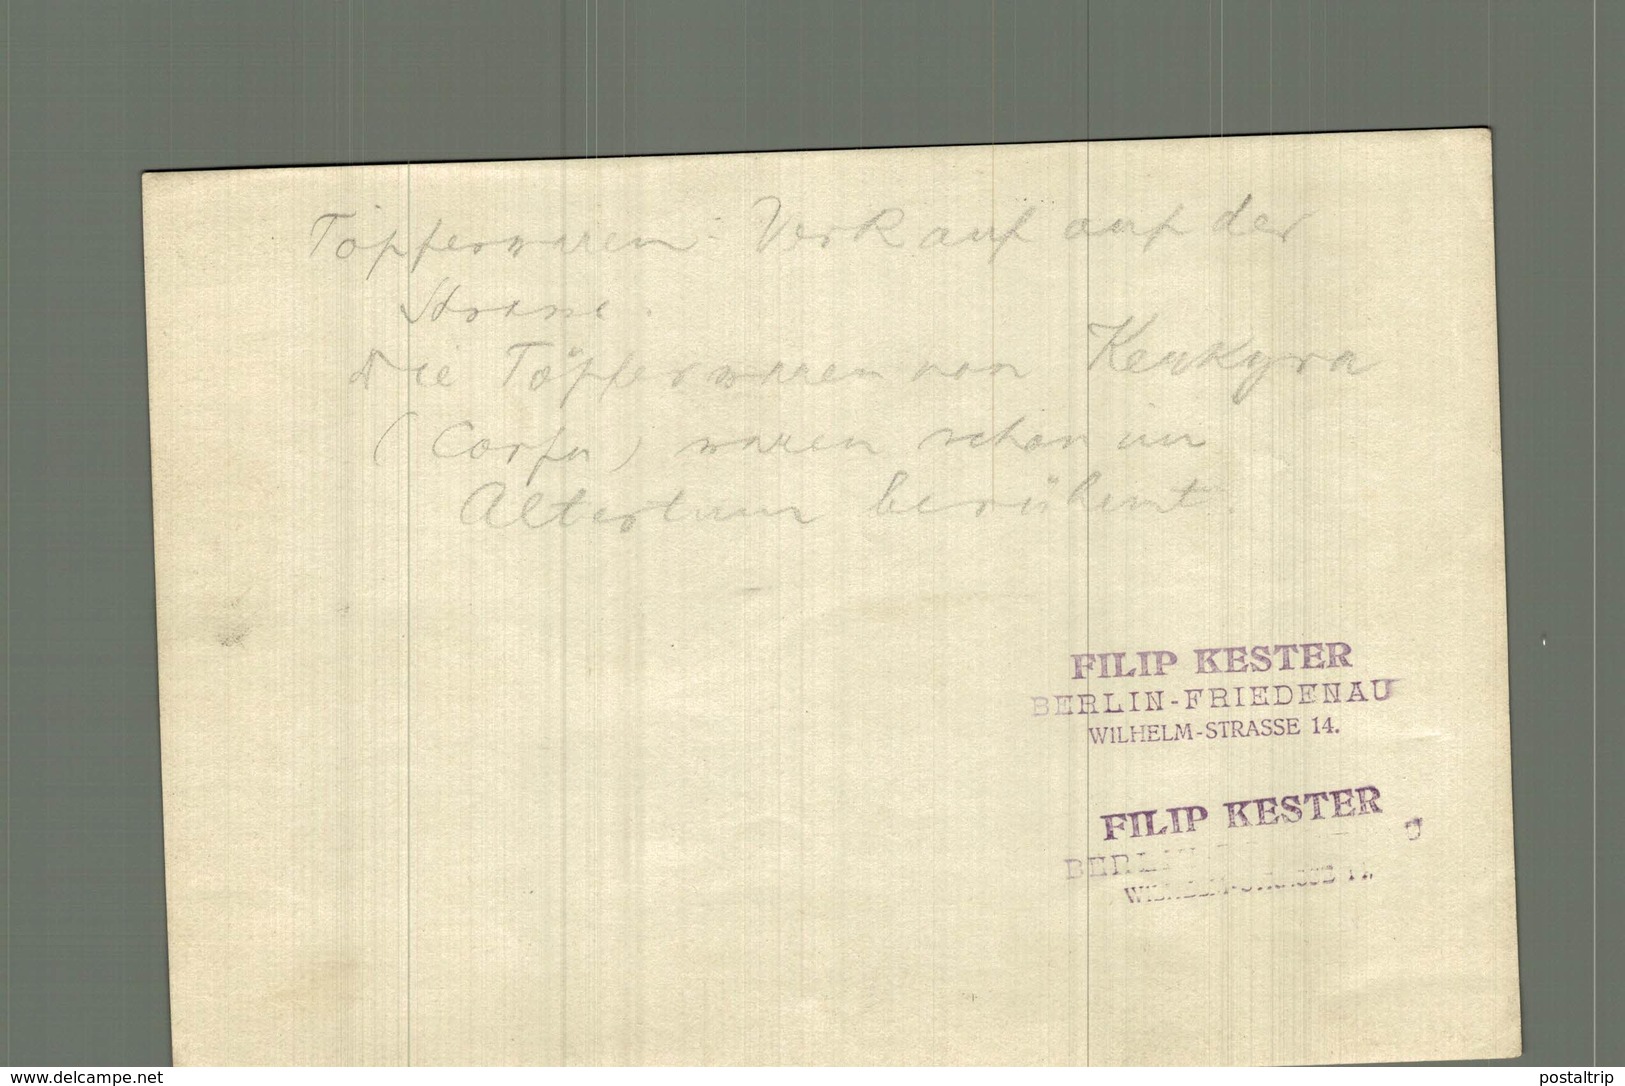 Töpferwaren: Verkauf auf der
Strasse.
Die Töpferwaren von Kerkyra
(Corfu) waren schon im
Altertum berühmt.
FILIP KESTER
BERLIN-FRIEDENAU
WILHELM-STRASSE 14.
FILIP KESTER
www.delcampe.net
postaltrip